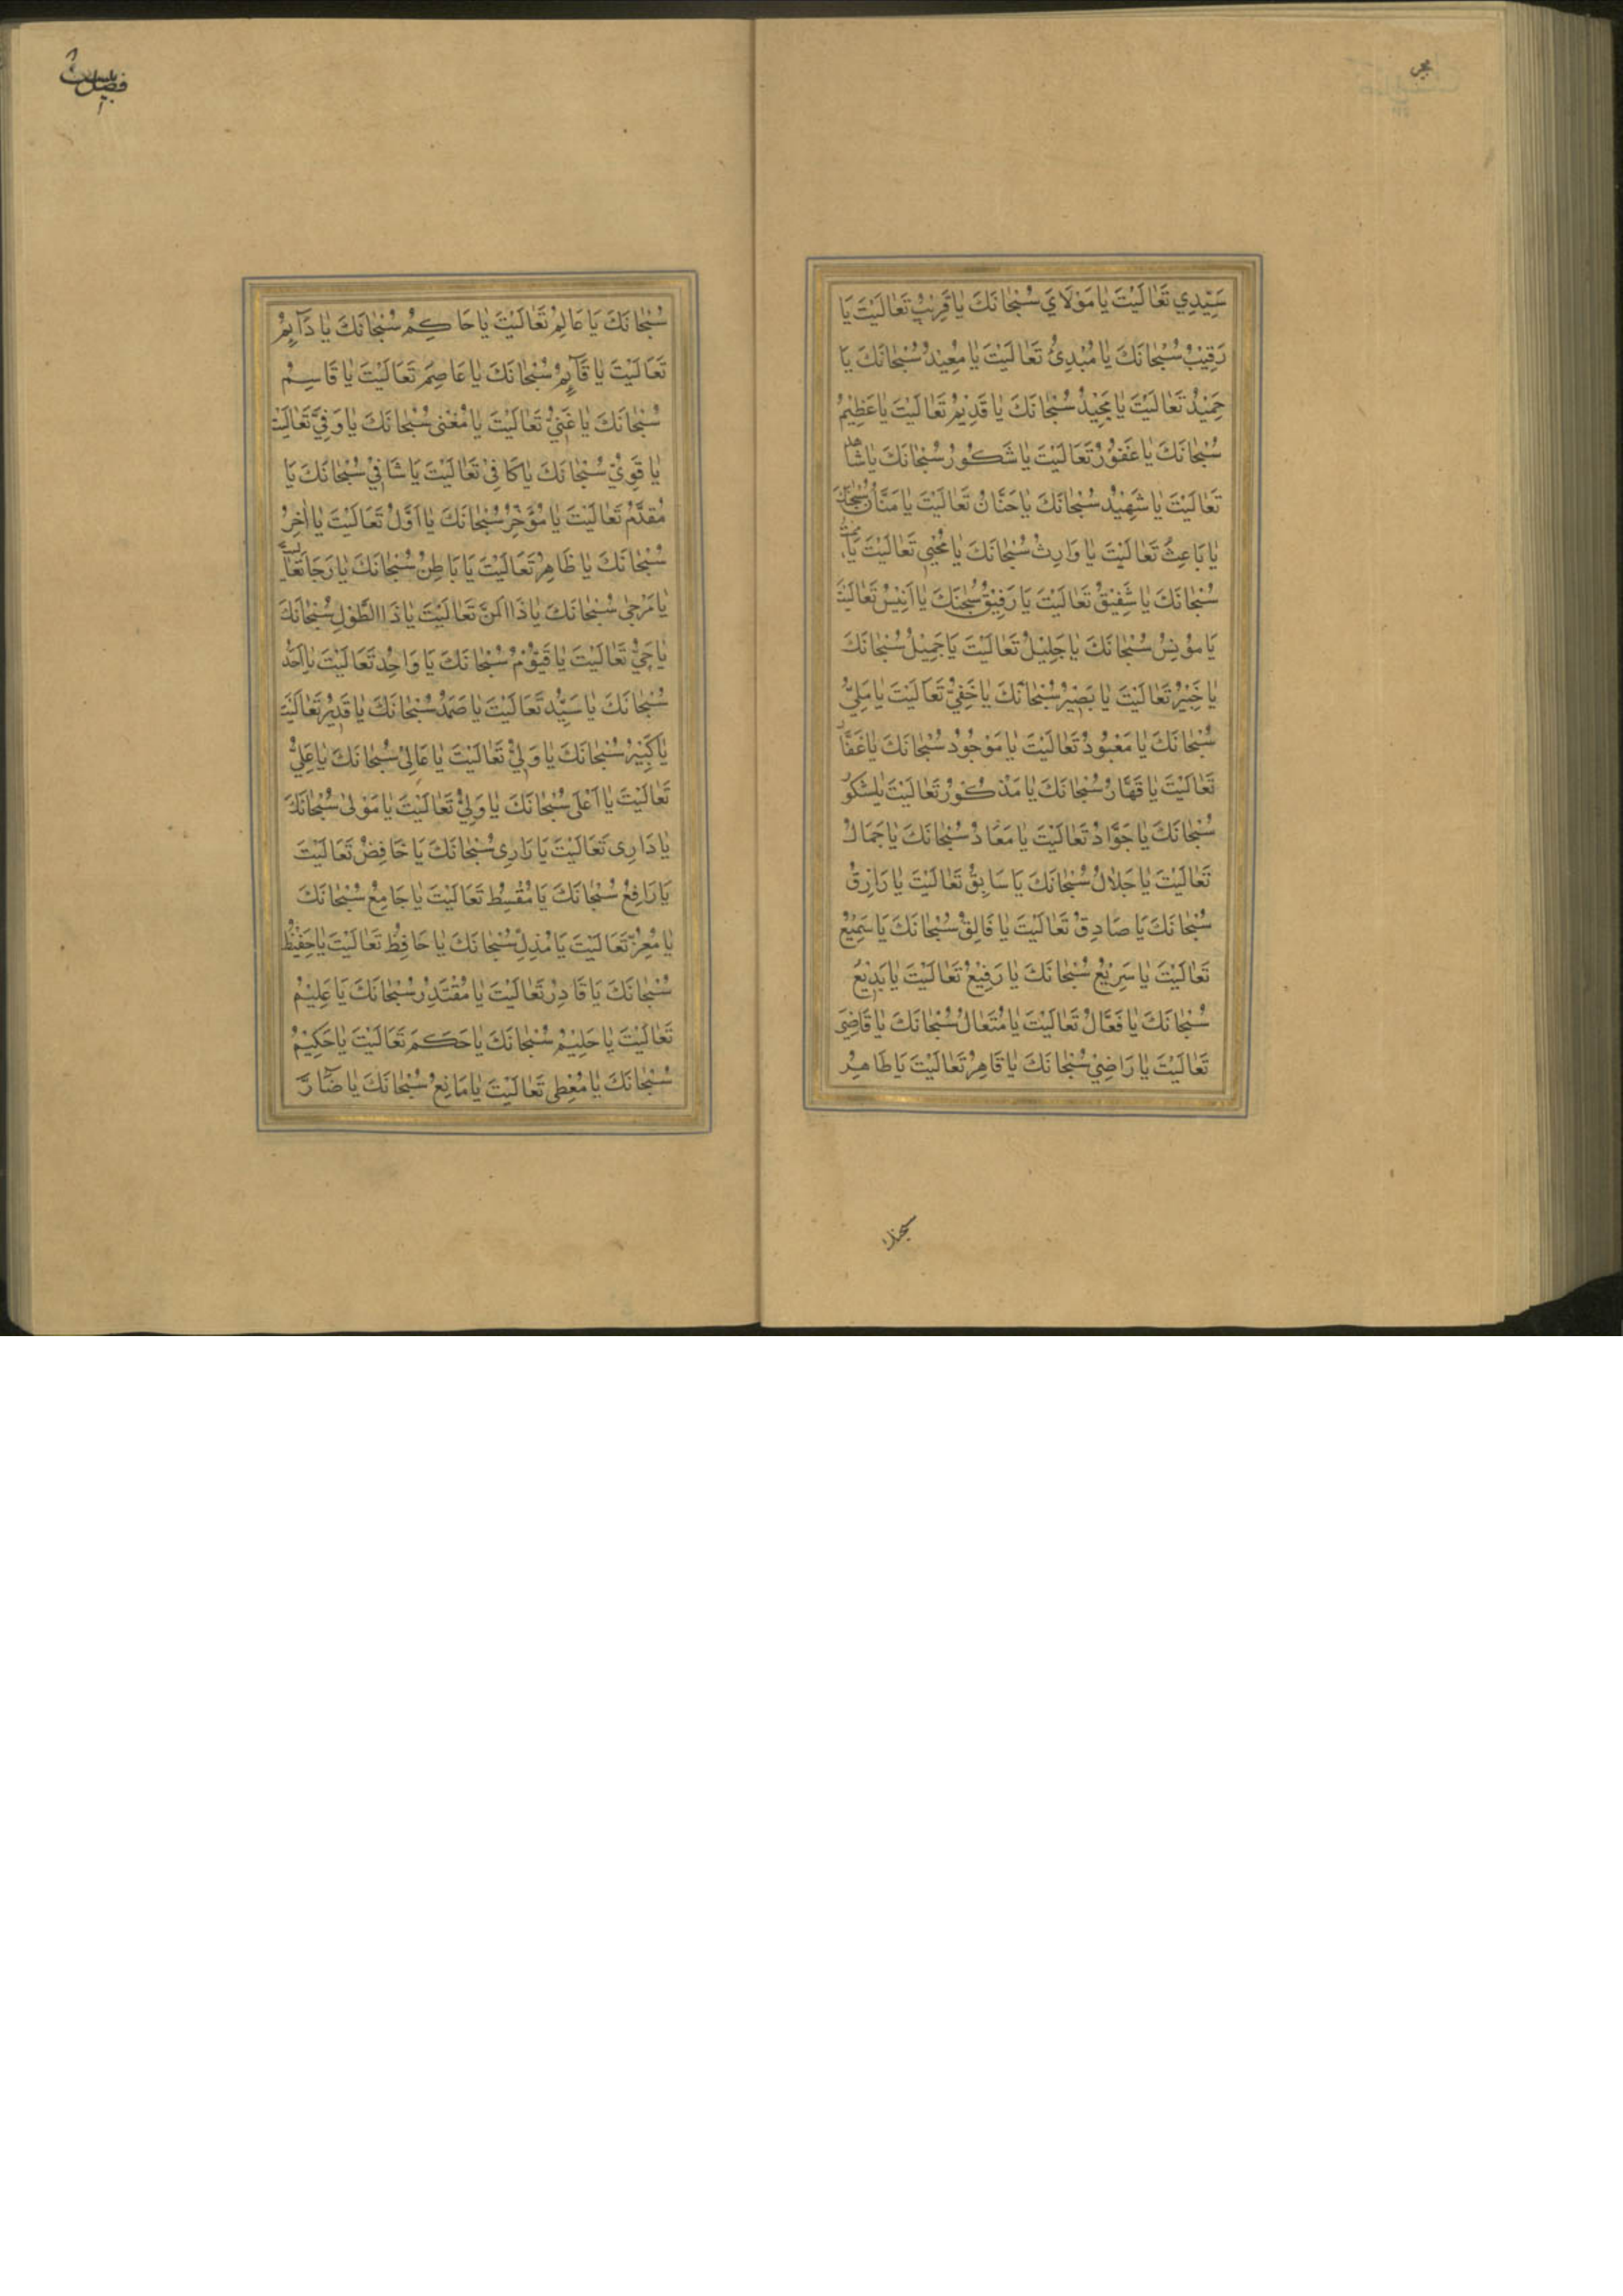 سَيِّدِي تَعَالَيْتَ يَا مَوْلَايَ سُبْحَانَكَ يَا قَرِيْبُ تَعَالَيْتَ يَا
رَقِيْبُ سُبْحَانَكَ يَا مُبْدِئُ تَعَالَيْتَ يَا مُعِيْدُ سُبْحَانَكَ يَا
حَمِيْدُ تَعَالَيْتَ يَا مَجِيْدُ سُبْحَانَكَ يَا قَدِيْمُ تَعَالَيْتَ يَا عَظِيْمُ
سُبْحَانَكَ يَا غَفُوْرُ تَعَالَيْتَ يَا شَكُوْرُ سُبْحَانَكَ يَا شَاهِدُ
تَعَالَيْتَ يَا شَهِيْدُ سُبْحَانَكَ يَا حَنَّانُ تَعَالَيْتَ يَا مَنَّانُ سُبْحَانَكَ
يَا بَاعِثُ تَعَالَيْتَ يَا وَارِثُ سُبْحَانَكَ يَا مُحْيِي تَعَالَيْتَ يَا مُمِيْتُ
سُبْحَانَكَ يَا شَفِيْقُ تَعَالَيْتَ يَا رَفِيْقُ سُبْحٰنَكَ يَا اَنِيْسُ تَعَالَيْتَ
يَا مُوْنِسُ سُبْحَانَكَ يَا جَلِيْلُ تَعَالَيْتَ يَا جَمِيْلُ سُبْحَانَكَ
يَا خَبِيْرُ تَعَالَيْتَ يَا بَصِيْرُ سُبْحَانَكَ يَا خَفِيُّ تَعَالَيْتَ يَا مَلِيُّ
سُبْحَانَكَ يَا مَعْبُوْدُ تَعَالَيْتَ يَا مَوْجُوْدُ سُبْحَانَكَ يَا غَفَّارُ
تَعَالَيْتَ يَا قَهَّارُ سُبْحَانَكَ يَا مَذْكُوْرُ تَعَالَيْتَ يَا مَشْكُوْرُ
سُبْحَانَكَ يَا جَوَّادُ تَعَالَيْتَ يَا مَعَادُ سُبْحَانَكَ يَا جَمَالُ
تَعَالَيْتَ يَا جَلَالُ سُبْحَانَكَ يَا سَابِقُ تَعَالَيْتَ يَا رَازِقُ
سُبْحَانَكَ يَا صَادِقُ تَعَالَيْتَ يَا فَالِقُ سُبْحَانَكَ يَا سَمِيْعُ
تَعَالَيْتَ يَا سَرِيْعُ سُبْحَانَكَ يَا رَفِيْعُ تَعَالَيْتَ يَا بَدِيْعُ
سُبْحَانَكَ يَا فَعَّالُ تَعَالَيْتَ يَا مُتَعَالُ سُبْحَانَكَ يَا قَاضِيَ
تَعَالَيْتَ يَا رَاضِيْ سُبْحَانَكَ يَا قَاهِرُ تَعَالَيْتَ يَا طَاهِرُ
سبحانك
سُبْحَانَكَ يَا عَالِمُ تَعَالَيْتَ يَا حَاكِمُ سُبْحَانَكَ يَا دَآئِمُ
تَعَالَيْتَ يَا قَآئِمُ سُبْحَانَكَ يَا عَاصِمَ تَعَالَيْتَ يَا قَاسِمُ
سُبْحَانَكَ يَا غَنِيُّ تَعَالَيْتَ يَا مُغْنِي سُبْحَانَكَ يَا وَفِيَّ تَعَالَيْتَ
يَا قَوِيُّ سُبْحَانَكَ يَا كَافِيْ تَعَالَيْتَ يَا شَافِيْ سُبْحَانَكَ يَا
مُقَدَّمُ تَعَالَيْتَ يَا مُؤَخِّرُ سُبْحَانَكَ يَا اَوَّلُ تَعَالَيْتَ يَا اٰخِرُ
سُبْحَانَكَ يَا ظَاهِرُ تَعَالَيْتَ يَا بَاطِنُ سُبْحَانَكَ يَا رَجَا تَعَالَيْتَ
يَا مُرْجٰى سُبْحَانَكَ يَا ذَا الْمَنِّ تَعَالَيْتَ يَا ذَا الطَّوْلِ سُبْحَانَكَ
يَا حَيُّ تَعَالَيْتَ يَا قَيُّوْمُ سُبْحَانَكَ يَا وَاحِدُ تَعَالَيْتَ يَا اَحَدُ
سُبْحَانَكَ يَا سَيِّدُ تَعَالَيْتَ يَا صَمَدُ سُبْحَانَكَ يَا قَدِيْرُ تَعَالَيْتَ
يَا كَبِيْرُ سُبْحَانَكَ يَا وَلِيُّ تَعَالَيْتَ يَا عَالِىُ سُبْحَانَكَ يَا عَلِيُّ
تَعَالَيْتَ يَا اَعْلٰى سُبْحَانَكَ يَا وَلِيُّ تَعَالَيْتَ يَا مَوْلٰى سُبْحَانَكَ
يَا ذَارِى تَعَالَيْتَ يَا بَارِى سُبْحَانَكَ يَا خَافِضُ تَعَالَيْتَ
يَا رَافِعُ سُبْحَانَكَ يَا مُقْسِطُ تَعَالَيْتَ يَا جَامِعُ سُبْحَانَكَ
يَا مُعِزُّ تَعَالَيْتَ يَا مُذِلُّ سُبْحَانَكَ يَا حَافِظُ تَعَالَيْتَ يَا حَفِيْظُ
سُبْحَانَكَ يَا قَادِرُ تَعَالَيْتَ يَا مُقْتَدِرُ سُبْحَانَكَ يَا عَلِيْمُ
تَعَالَيْتَ يَا حَلِيْمُ سُبْحَانَكَ يَا حَكَمُ تَعَالَيْتَ يَا حَكِيْمُ
سُبْحَانَكَ يَا مُعْطِى تَعَالَيْتَ يَا مَانِعُ سُبْحَانَكَ يَا ضَآرَّ